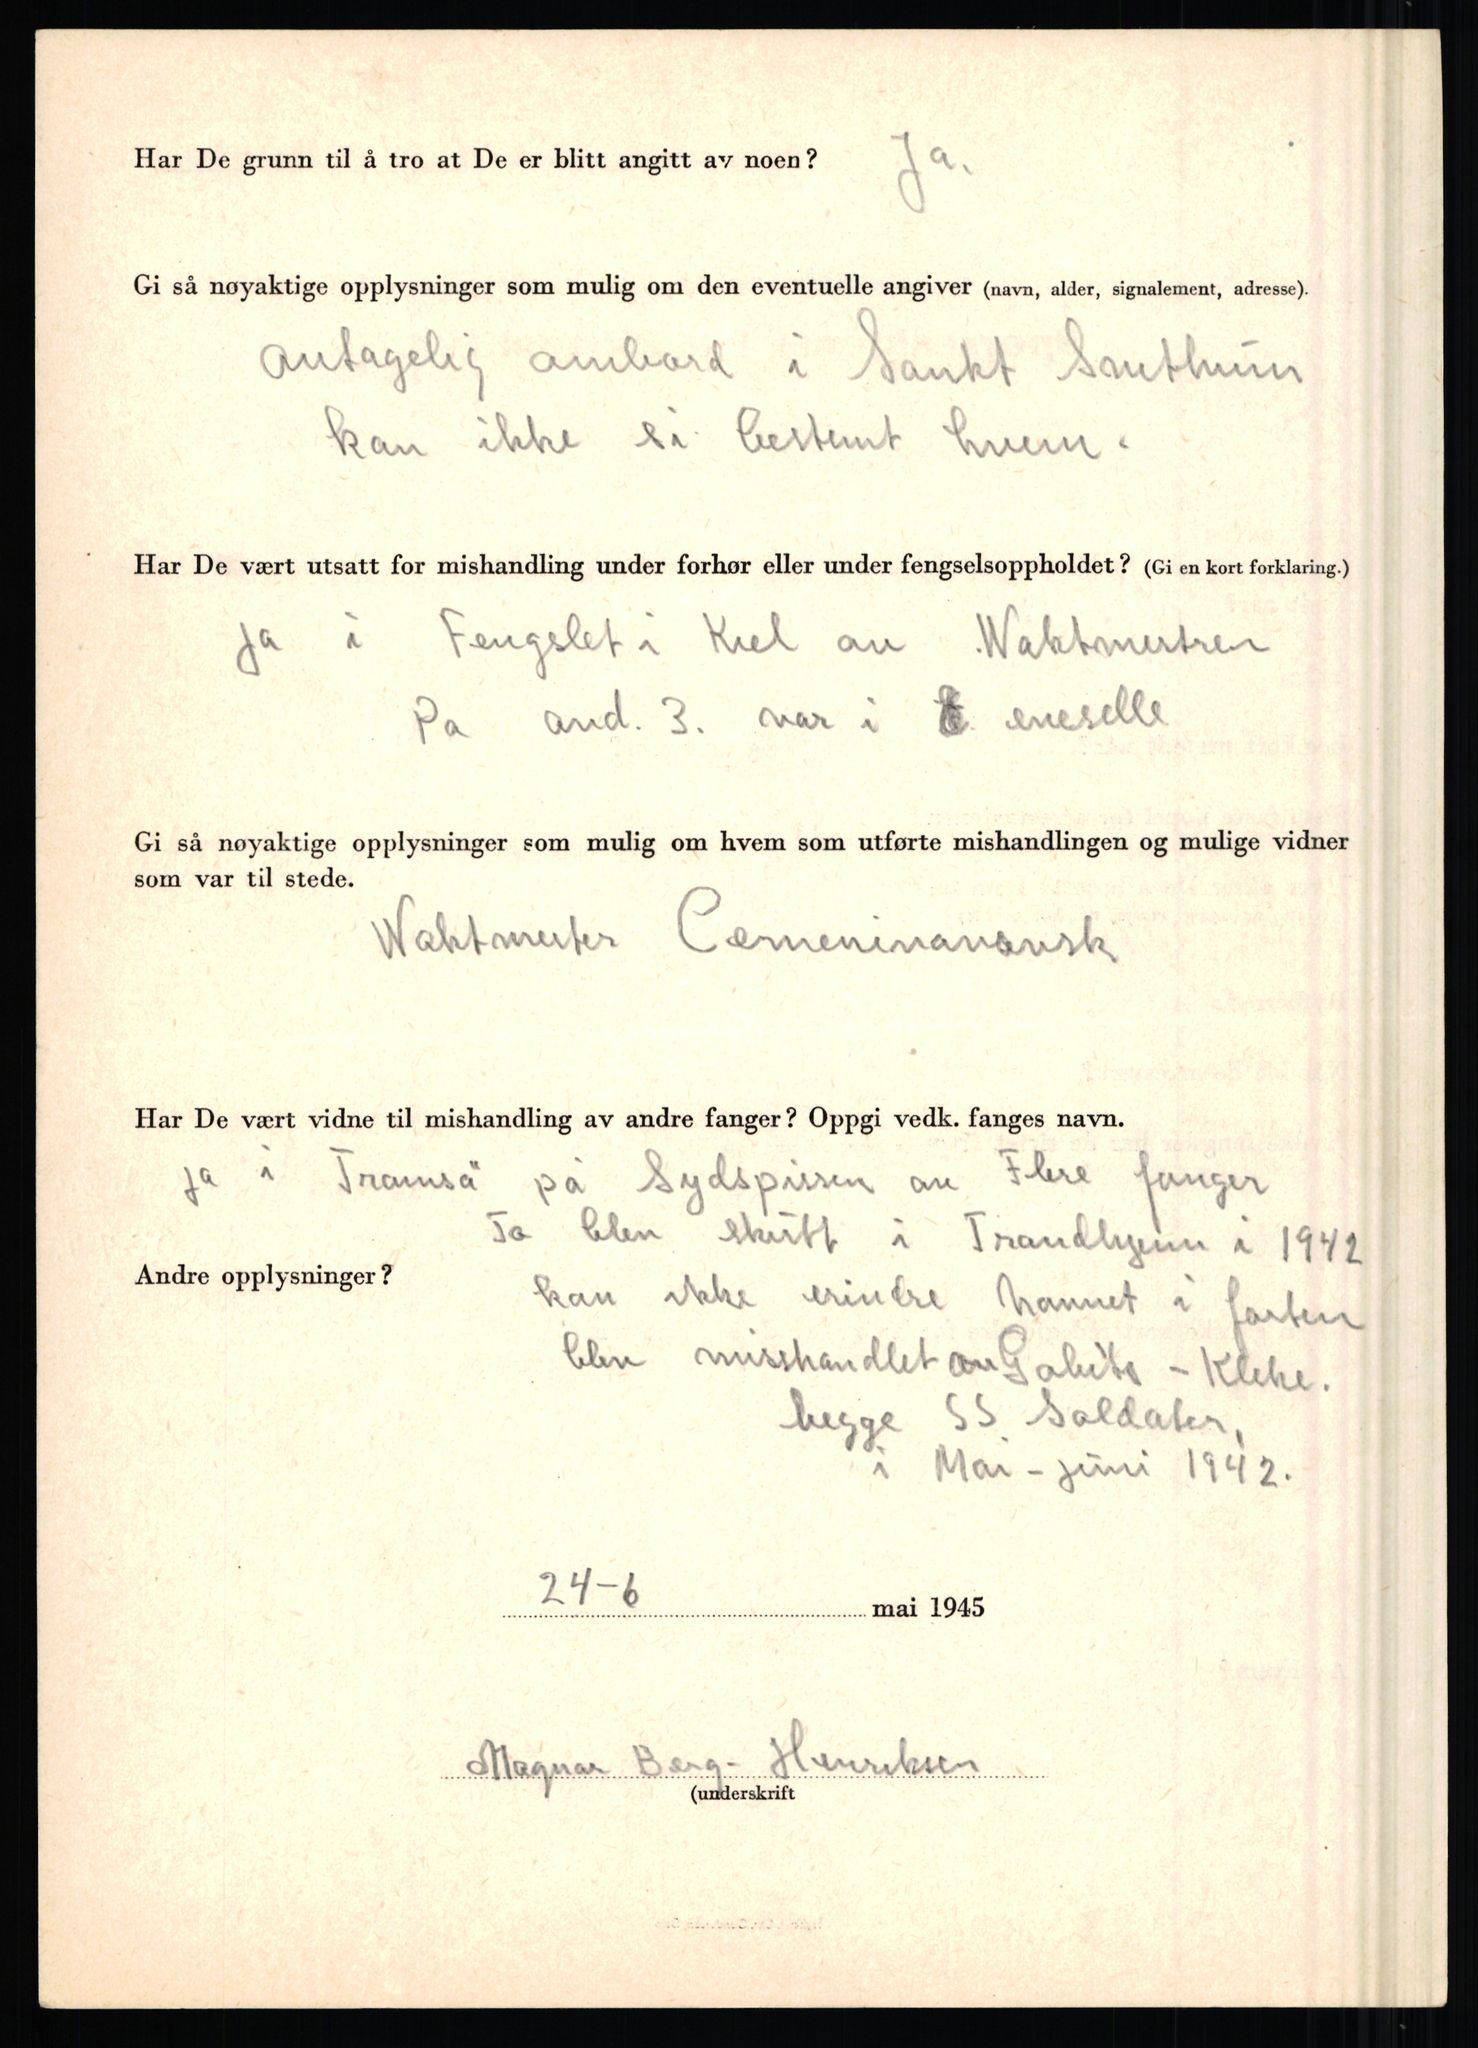 Har De grunn til å tro at De er blitt angitt av noen? Ja.
Gi så nøyaktige opplysninger som mulig om den eventuelle angiver (navn, alder, signalement, adresse).
antagelig ombord i Sankt Snuthun
kan ikke si bestemt hvem.
Har De vært utsatt for mishandling under forhør eller under fengselsoppholdet? (Gi en kort forklaring.)
ja i Fengslet i Kiel av Waktmestren
Pa avd. 3. var i eneselle
Gi så nøyaktige opplysninger som mulig om hvem som utførte mishandlingen og mulige vidner
som var til stede.
Waktmester
Har De vært vidne til mishandling av andre fanger? Oppgi vedk. fanges navn.
ja i Tromsö på Sydspissen av Flere fanger
To blev skutt i Trondhjem i 1942
Andre opplysninger?
kan ikke erindre navnet i farten
blev misshandlet av - Kleke.
begge SS Soldater,
i Mai - juni 1942.
24-6 mai 1945
Magnar Berg-Henriksen
(underskrift